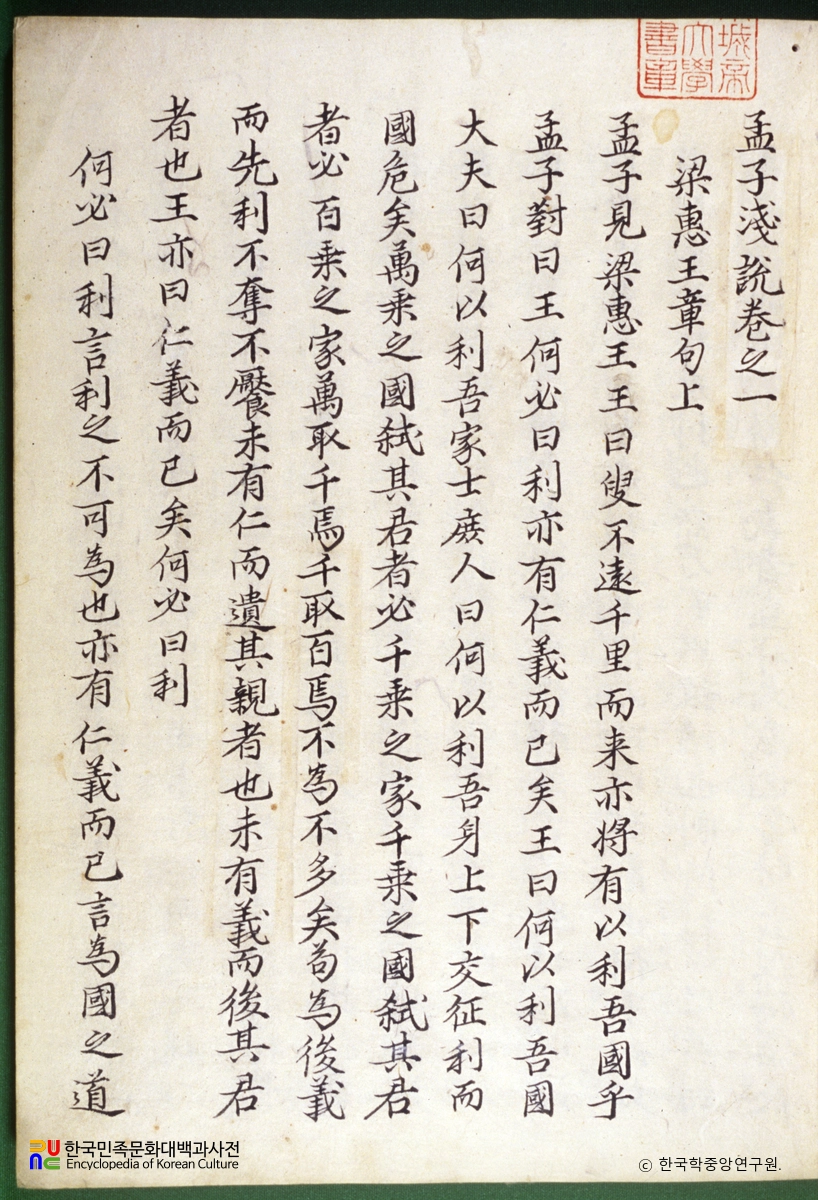 城帝
大學
書章
孟子淺說卷之一
梁惠王章句上
孟子見梁惠王王曰叟不遠千里而来亦將有以利吾國乎
孟子對曰王何必曰利亦有仁義而已矣王曰何以利吾國
大夫曰何以利吾家士庶人曰何以利吾身上下交征利而
國危矣萬乘之國弑其君者必千乘之家千乘之國弑其君
者必百乘之家萬取千焉千取百焉不為不多矣苟為後義
而先利不奪不饜未有仁而遺其親者也未有義而後其君
者也王亦曰仁義而已矣何必曰利
何必曰利言利之不可為也亦有仁義而已言為國之道
한국민족문화대백과사전
Encyclopedia of Korean Culture
ⓒ 한국학중앙연구원.